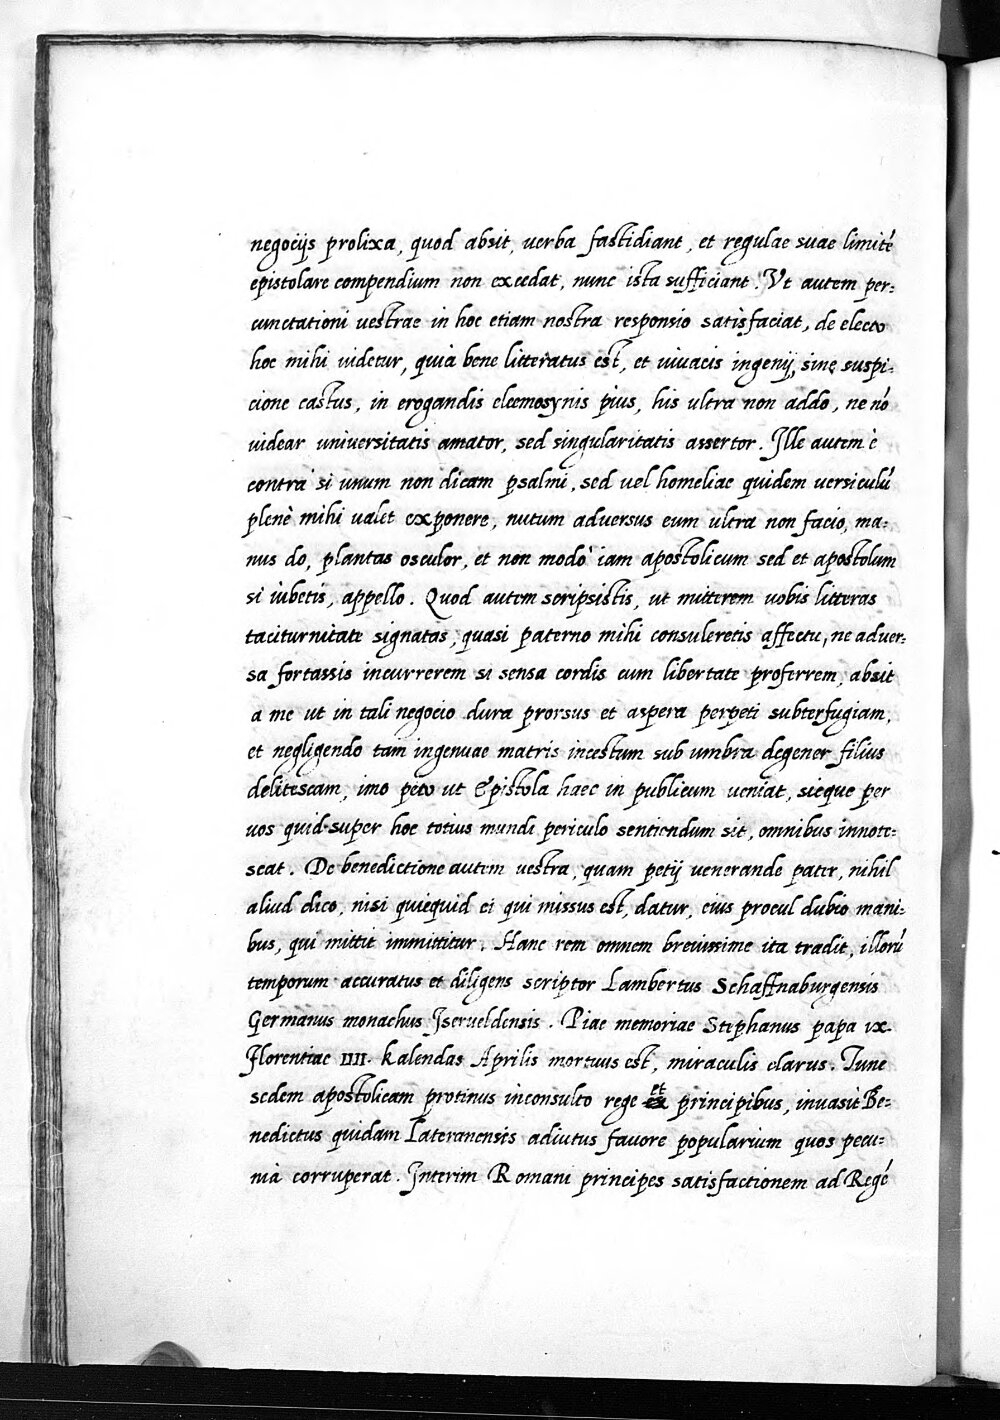 negocijs prolixa, quod absit, verba fastidiant, et regulae suae limité
epistolare compendium non excedat, nunc ista sufficiant. Vt autem per:
cunctationi vestrae in hoc etiam nostra responsio satisfaciat, de electo
hoc mihi videtur, quià bene litteratus est, et vivacis ingenij, sine suspi:
cione castus, in erogandis eleemosynis pius, his ultra non addo, ne nó
videar universitatis amator, sed singularitatis assertor. Ille autem è
contrà si unum non dicam psalmi, sed vel homeliae quidem versiculú
plenè mihi valet exponere, nutum adversus eum ultra non facio, ma:
nus do, plantas osculor, et non modò iam apostolicum sed et apostolum
si iubetis, appello. Quod autem scripsistis, ut mitterem vobis litteras
taciturnitate signatas, quasi paterno mihi consuleretis affectu, ne adver:
sa fortassis incurrerem si sensa cordis cum libertate proferrem, absit
a me ut in tali negocio dura prorsus et aspera perpeti subterfugiam,
et negligendo tam ingenuae matris incestum sub umbra degener filius
delitescam, imo peto ut Epistola haec in publicum veniat, sicque per
vos quid super hoc totius mundi periculo sentiendum sit, omnibus innote:
scat. De benedictione autem vestra, quam petij venerande pater, nihil
aliud dico, nisi quicquid ei qui missus est, datur, eius procul dubio mani:
bus, qui mittit immittitur. Hanc rem omnem brevissime ita tradit, illorú
temporum accuratus et diligens scriptor Lambertus Schaffnaburgensis
Germanus monachus Jserveldensis. Piae memoriae Stephanus papa ix.
Florentiae IIII. kalendas Aprilis mortuus est, miraculis clarus. Tunc
sedem apostolicam protinus inconsulto rege et principibus, invasit Be:
nedictus quidam Lateranensis adiutus favore popularium quos pecu:
nià corruperat. Interim Romani principes satisfactionem ad Regé